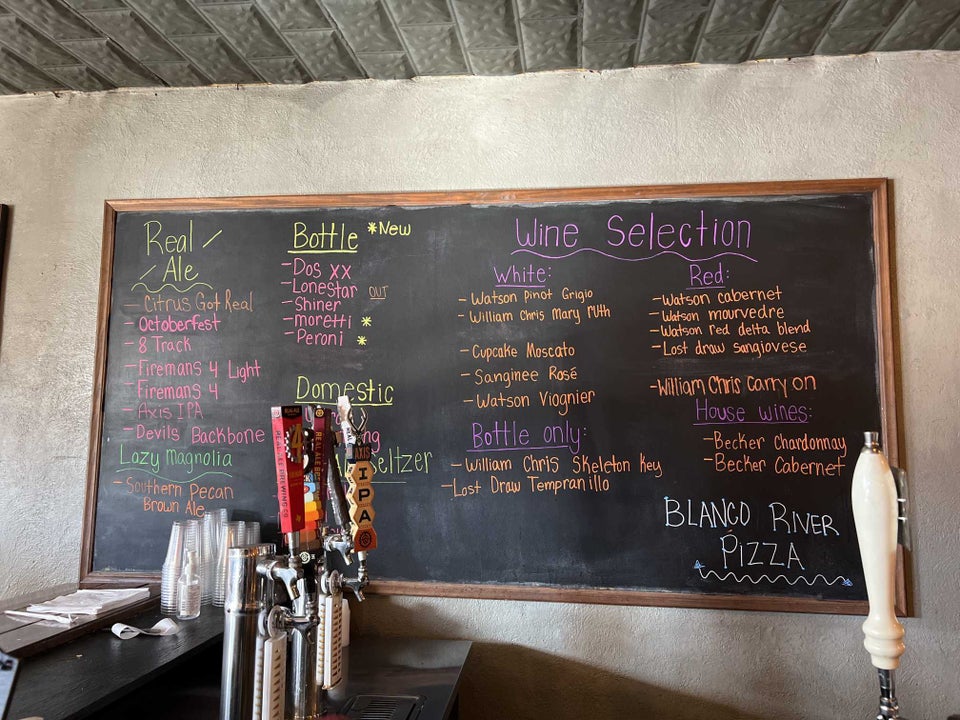 Real
Ale
- Citrus Got Real
- Octoberfest
- 8 Track
- Firemans 4 Light
- Firemans 4
- Axis IPA
- Devils Backbone
Lazy Magnolia
- Southern Pecan
Brown Ale
Bottle *New
- Dos XX
- Lonestar OUT
- Shiner
- moretti *
- Peroni *
Domestic
Seltzer
Wine Selection
White:
- Watson Pinot Grigio
- William Chris Mary Ruth
- Cupcake Moscato
- Sanginee Rosé
- Watson Viognier
Bottle only:
- William Chris Skeleton Key
- Lost Draw Tempranillo
Red:
- Watson cabernet
- Watson mourvedre
- Watson red delta blend
- Lost draw sangiovese
- William Chris Carry on
House wines:
- Becker Chardonnay
- Becker Cabernet
BLANCO RIVER
PIZZA
REAL ALE BREWING CO
4
REAL ALE
AXIS
IPA